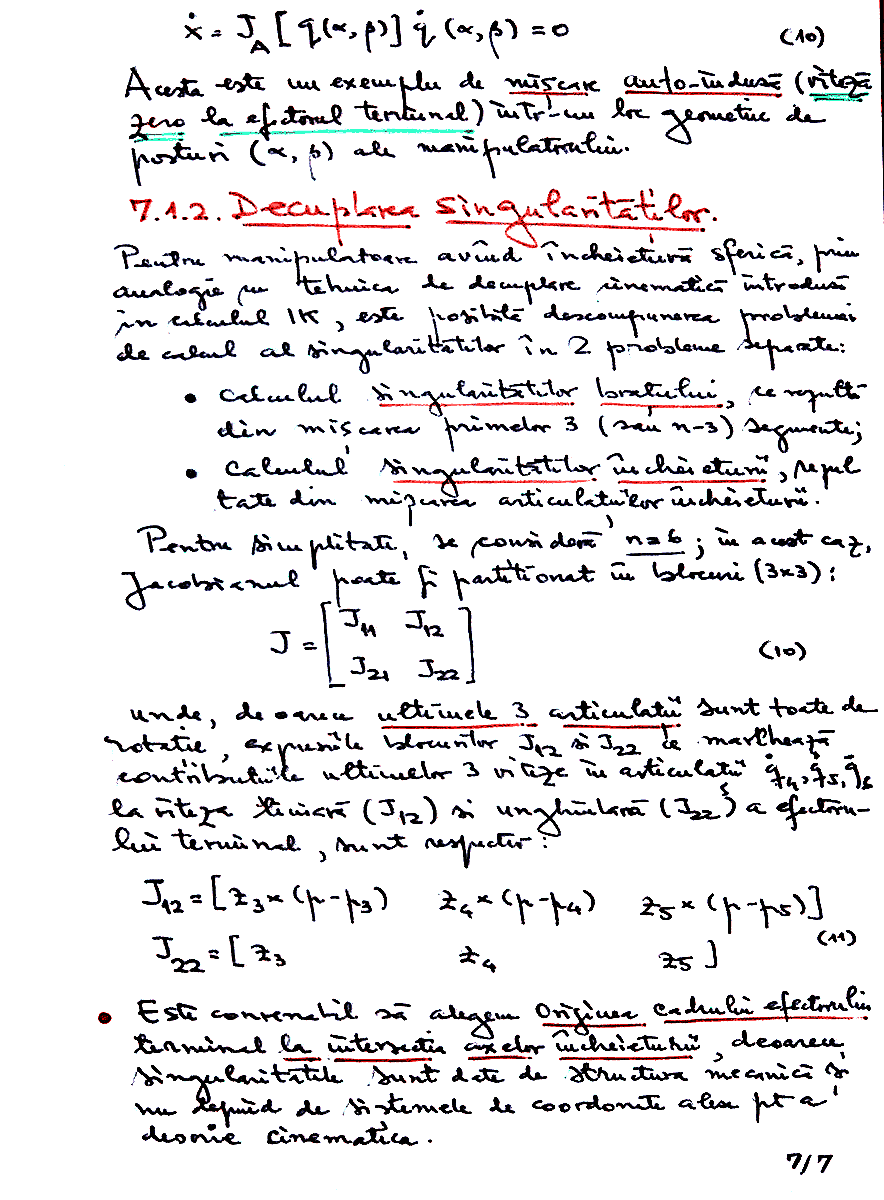 ẋ = J_A [q(α,β)] q̇ (α,β) = 0 (10)
Acesta este un exemplu de mișcare auto-indusă (viteză
zero la efectorul terminal) într-un loc geometric de
posturi (α, β) ale manipulatorului.
7.1.2. Decuplarea singularităților.
Pentru manipulatoare având încheietură sferică, prin
analogie cu tehnica de decuplare cinematică introdusă
în calculul IK, este posibilă descompunerea problemei
de calcul al singularităților în 2 probleme separate:
• calculul singularităților brațului, ce rezultă
din mișcarea primelor 3 (sau n-3) segmente;
• Calculul singularităților încheieturii, rezul
tate din mișcarea articulațiilor încheieturii.
Pentru simplitate, se consideră n=6; în acest caz,
Jacobianul poate fi partiționat în blocuri (3x3):
J = [J11 J12
J21 J22] (10)
unde, deoarece ultimele 3 articulații sunt toate de
rotație, expresiile blocurilor J12 și J22 ce marchează
contribuțiile ultimelor 3 viteze în articulații q̇4, q̇5, q̇6
la viteza liniară (J12) și unghiulară (J22) a efectoru-
lui terminal, sunt respectiv:
J12 = [z3 × (p-p3) z4 × (p-p4) z5 × (p-p5)]
J22 = [z3 z4 z5] (11)
• Este convenabil să alegem originea cadrului efectorului
terminal la intersecția axelor încheieturii, deoarece
singularitățile sunt date de structura mecanică și
nu depind de sistemele de coordonate alese pt a
descrie cinematica.
7/7